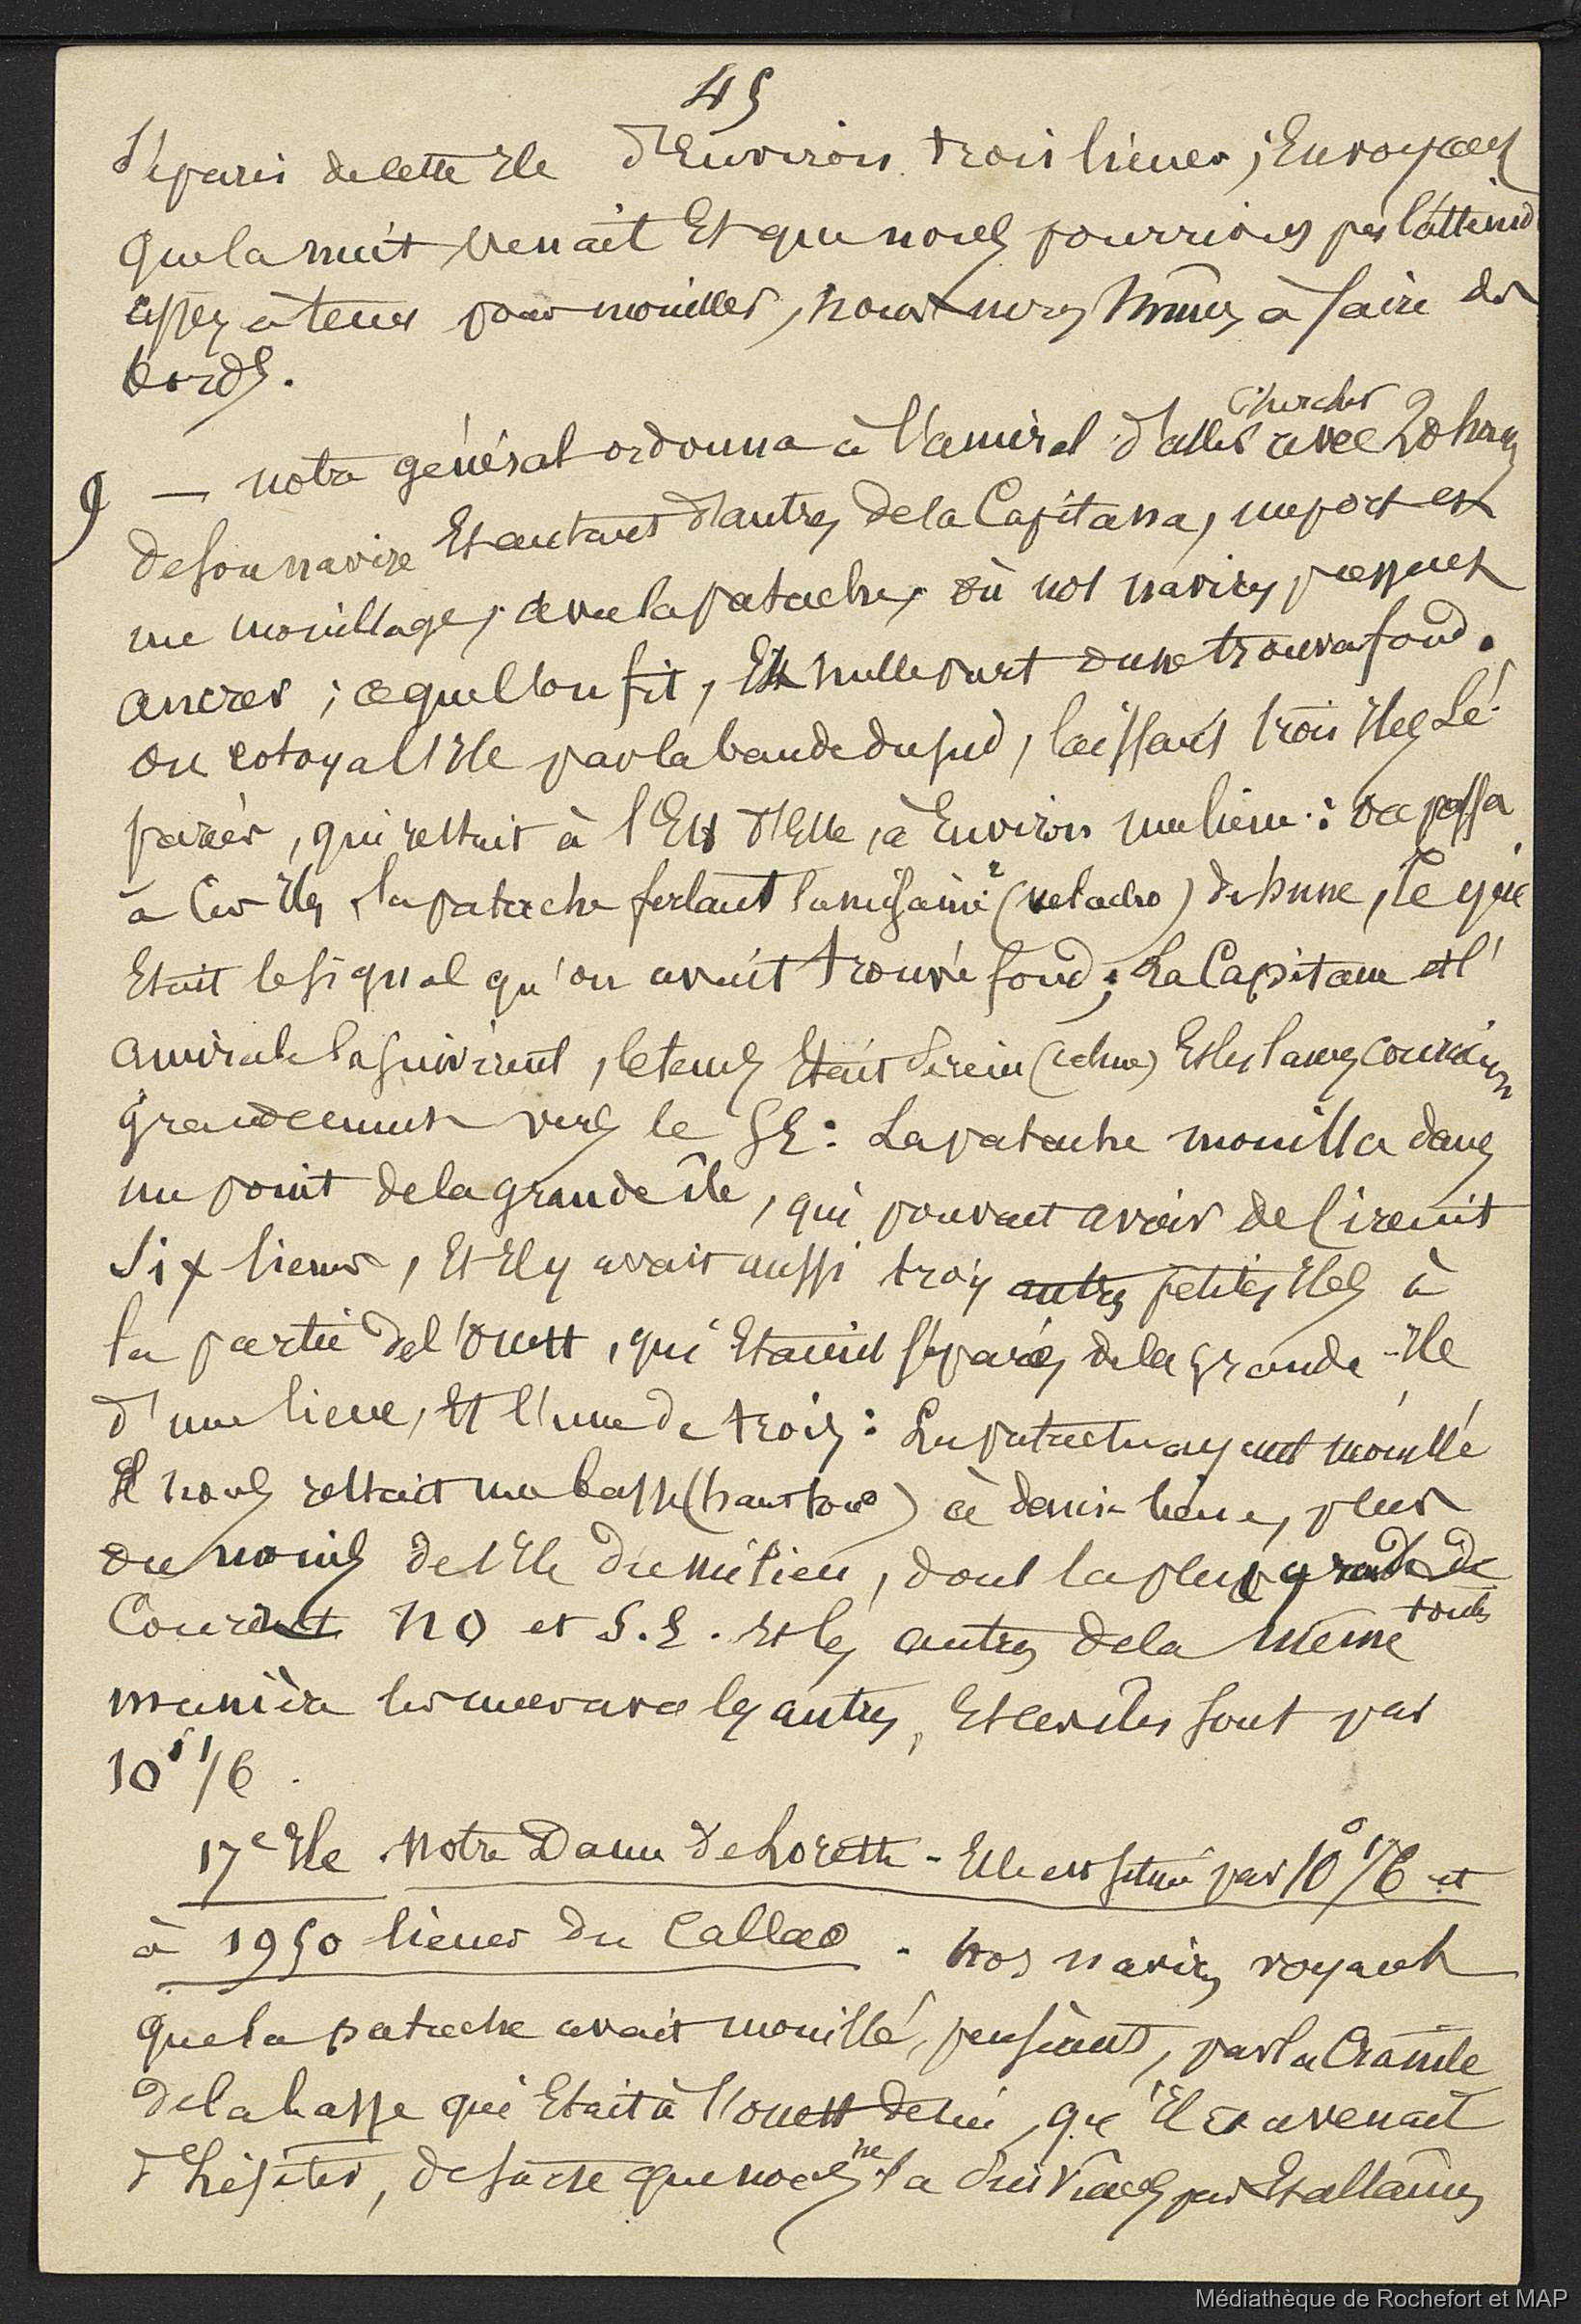 45
séparés de cette Ile d'Environ trois lieues ; En voyant
que la nuit venait Et que nous pourrions pas l'atteind
assez à temps pour mouiller, nous nous mîmes à faire des
bords.
chercher
9 — notre général ordonna à l'amiral d'aller avec 20 hms
de son navire Et autant d'autres de la Capitana, un port et
un mouillage, avec la patache, où nos navires pussent
ancrer ; ce que l'on fit, Et nulle part on ne trouva fond.
on cotoya l'Ile par la bande du sud, laissant trois Iles Sé-
parées, qui restait à l'Est d'Elle, à Environ une lieue : on passa
à ces Iles, la patache ferlant la misaine (velacho) de hune, ce qui
Etait le signal qu'on avait trouvé fond ; La Capitane et l'
amirale la suivirent, le temps Etait serein (calme) Et les lames couraient
grandement vers le SE : La patache mouilla dans
un point de la grande île, qui pouvait avoir de Circuit
Six lieues, Et Il y avait aussi trois autres petites Iles à
la partie de l'ouest, qui Etaient séparées de la grande Ile
d'une lieue, Et l'une de trois : La patache ayant mouillé
Il nous restait une basse à demi-lieue, plus
ou moins de l'Ile du milieu, dont la plus grande
Courent NO et S.E. Et les autres de la même
toutes
manière les unes avec les autres, Et ces îles sont par
10° 1/6.
17e Ile Notre Dame de Lorette - Elle est située par 10° 1/6 et
à 1950 lieues du Callao. Nos navires voyant
que la patache avait mouillé, pensèrent, par la crainte
de la basse qui Etait à l'ouest de lui, qu'Il convenait
d'hésiter, de sorte que nous ne la suivîmes pas Et allâmes
Médiathèque de Rochefort et MAP